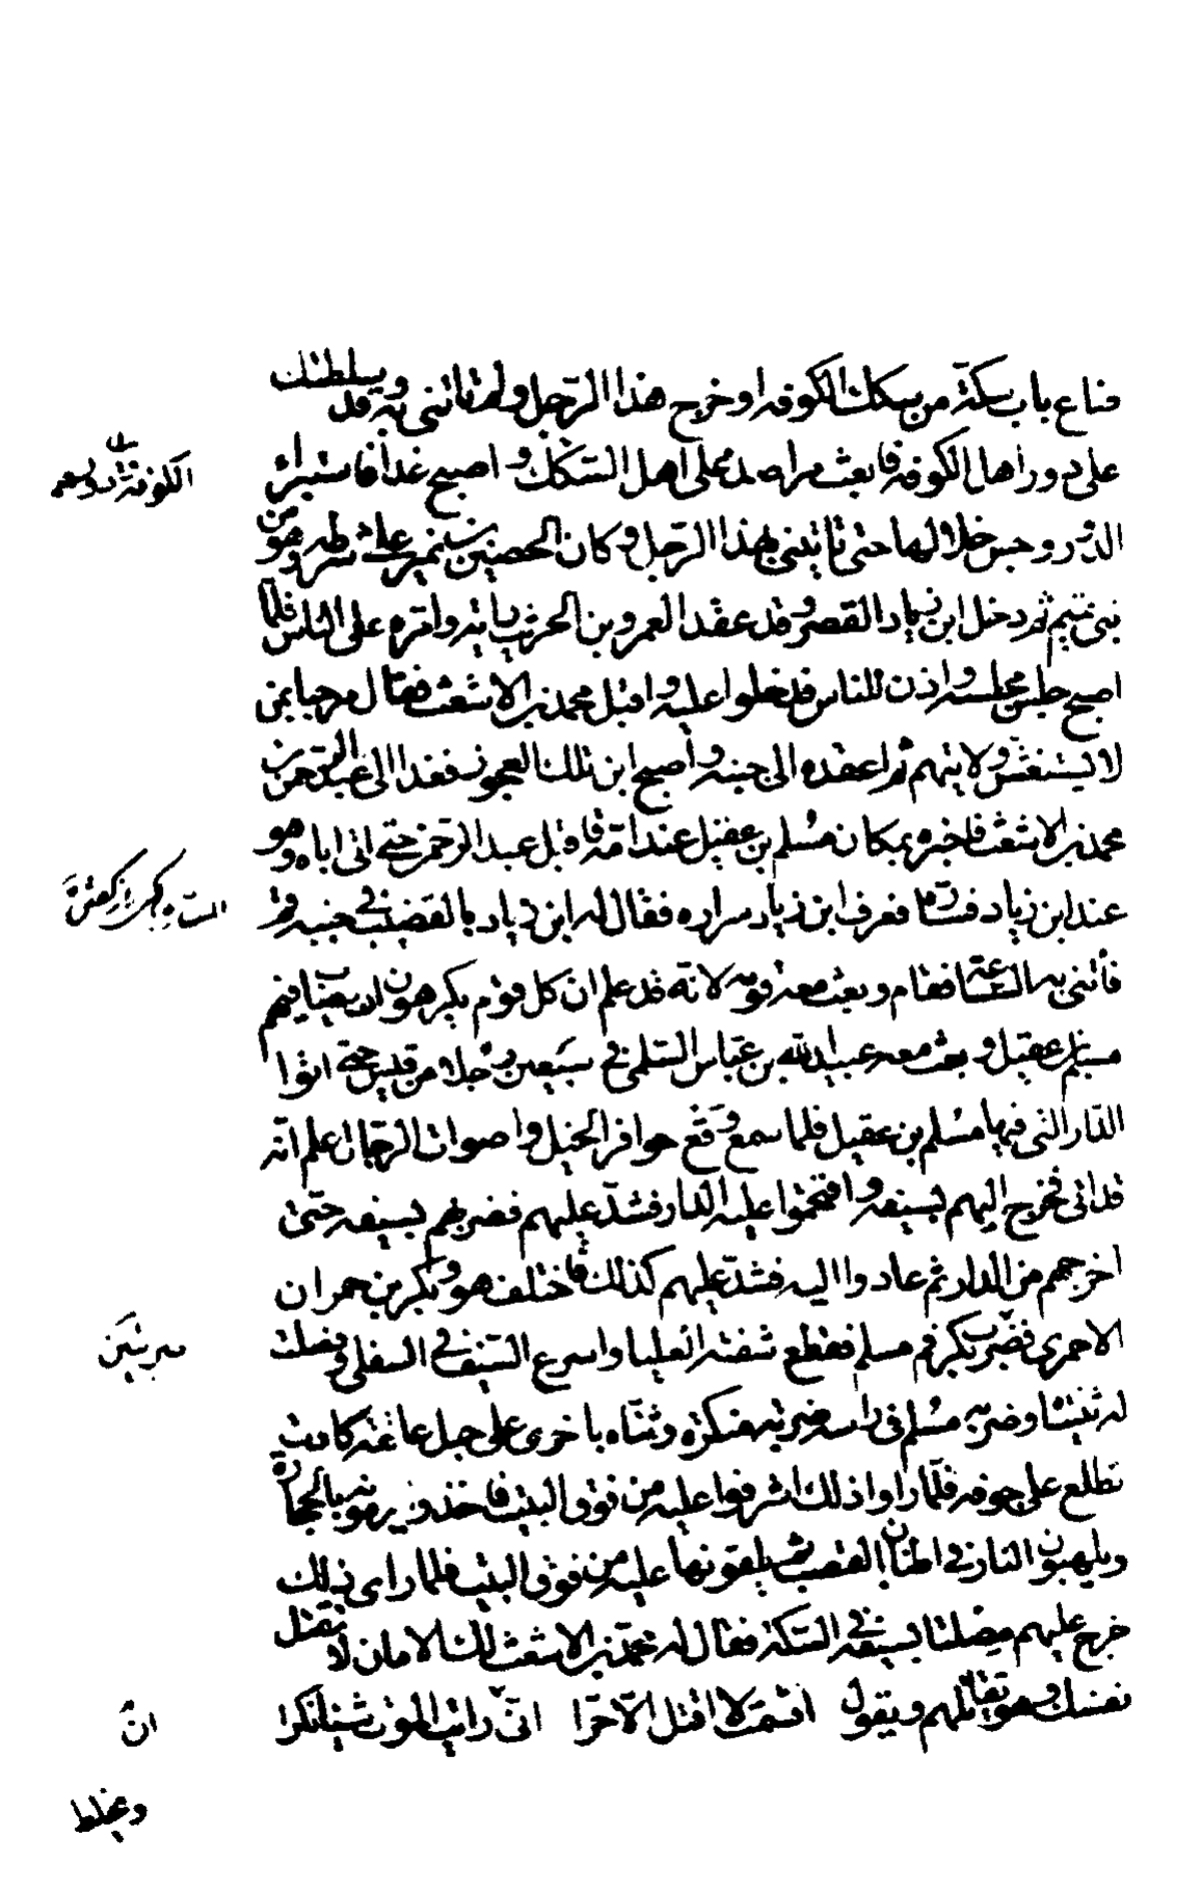 ضاع باب سكة من سكك الكوفة او خرج هذا الرجل ولم تأتنى به وقد سلطتك
على دور اهل الكوفة فابعث مراصد على اهل السكك و اصبح غدا فاستبرئ
الدور وجس خلالها حتى تأتينى بهذا الرجل وكان الحصين بن نمير على شرطه وهو من
بنى تميم ثم دخل ابن زياد القصر وقد عقد لعمرو بن الحريث راية وامره على الناس فلما
اصبح جلس مجلسه واذن للناس فدخلوا عليه واقبل محمد بن الاشعث فقال مرحبا بمن
لا يستغش ولا يتهم ثم اعقده الى جنبه واصبح ابن تلك العجوز فغدا الى عبد الرحمن بن
محمد بن الاشعث فاخبره بمكان مسلم بن عقيل عند امه فاقبل عبد الرحمن حتى اتى اباه وهو
عند ابن زياد فساره فعرف ابن زياد سراره فقال له ابن زياد بالقضيب فى جنبه قم
فأتنى به الساعة فقام وبعث معه قومه لانه قد علم ان كل قوم يكرهون ان يصاب فيهم
مسلم بن عقيل و بعث معه عبيد الله بن عباس السلمى فى سبعين رجلا من قيس حتى اتوا
الدار التى فيها مسلم بن عقيل فلما سمع وقع حوافر الخيل واصوات الرجال علم انه
قد اتى فخرج اليهم بسيفه واقتحموا عليه الدار فشد عليهم فضربهم بسيفه حتى
اخرجهم من الدار ثم عادوا اليه فشد عليهم كذلك فاختلف هو وبكر بن حمران
الاحمرى فضرب بكر فم مسلم فقطع شفته العليا واسرع السيف فى السفلى وفصلت
له ثنيتاه وضربه مسلم فى راسه ضربة منكرة وثناه باخرى على حبل عاتقه كادت
تطلع على جوفه فلما راوا ذلك اشرفوا عليه من فوق البيت فاخذوا يرمونه بالحجارة
ويلهبون النار فى اطنان القصب ثم يلقونها عليه من فوق البيت فلما راى ذلك
خرج عليهم مصلتا بسيفه فى السكة فقال له محمد بن الاشعث لك الامان لا تقتل
نفسك وهو يقاتلهم ويقول اقسمت لا اقتل الا حرا انى رايت الموت شيئا نكرا
ان
ويخلط